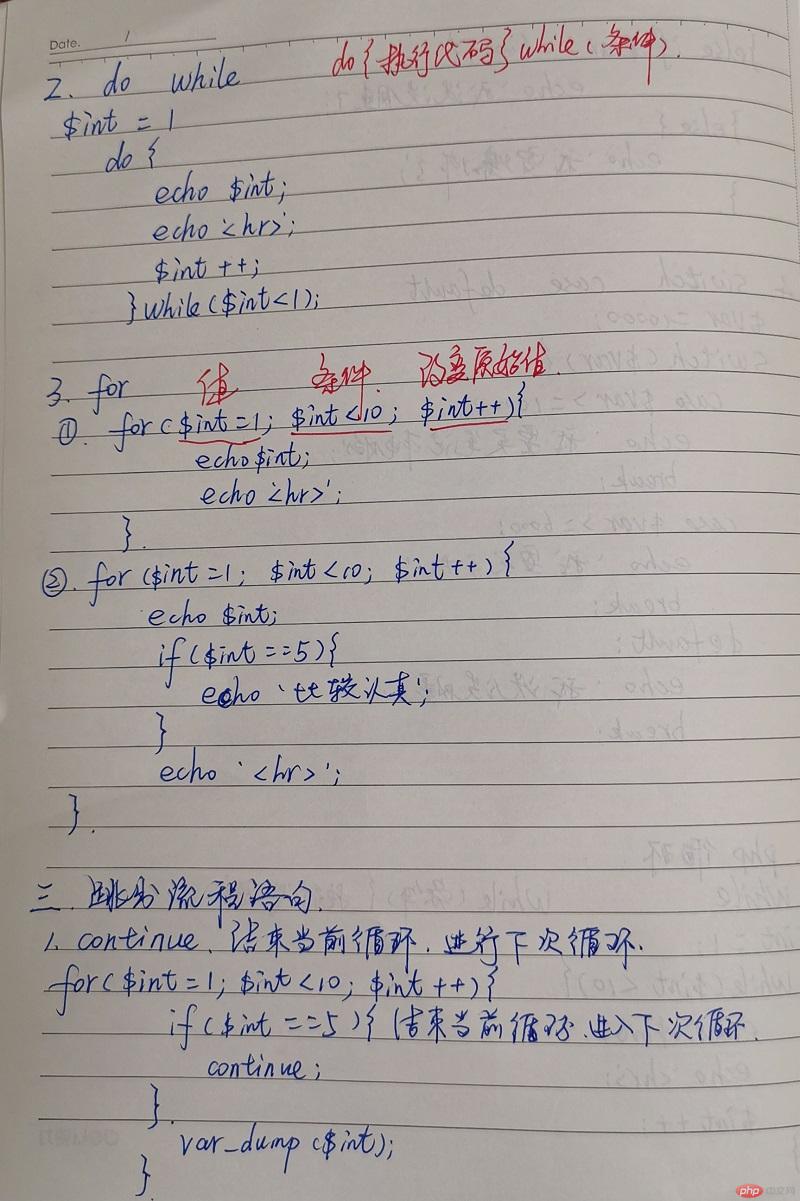 Date. 1
2. do while do{执行代码}while(条件).
$int = 1
do {
echo $int;
echo '<hr>';
$int ++;
}while($int<1);
3. for 值 条件. 改变原始值.
①. for ($int=1; $int<10; $int++){
echo $int;
echo '<hr>';
}.
②. for ($int=1; $int<10; $int++){
echo $int;
if($int==5){
echo '比较认真';
}
echo '<hr>';
}.
三. 跳出流程语句.
1. continue. 结束当前循环. 进行下次循环.
for($int=1; $int<10; $int++){
if($int==5){ 结束当前循环.进入下次循环.
continue;
}.
var_dump($int);
}
php 中文网